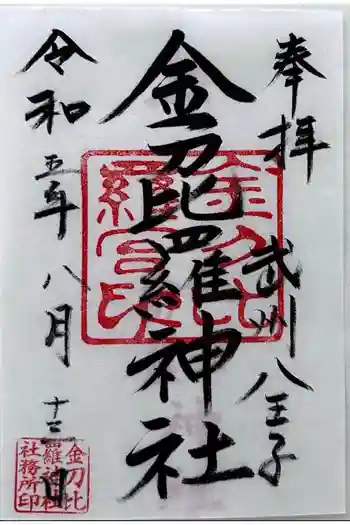 奉拝　武州八王子
金刀比羅神社
令和五年八月十三日
金刀比
羅宮印
金刀比
羅神社
社務所印